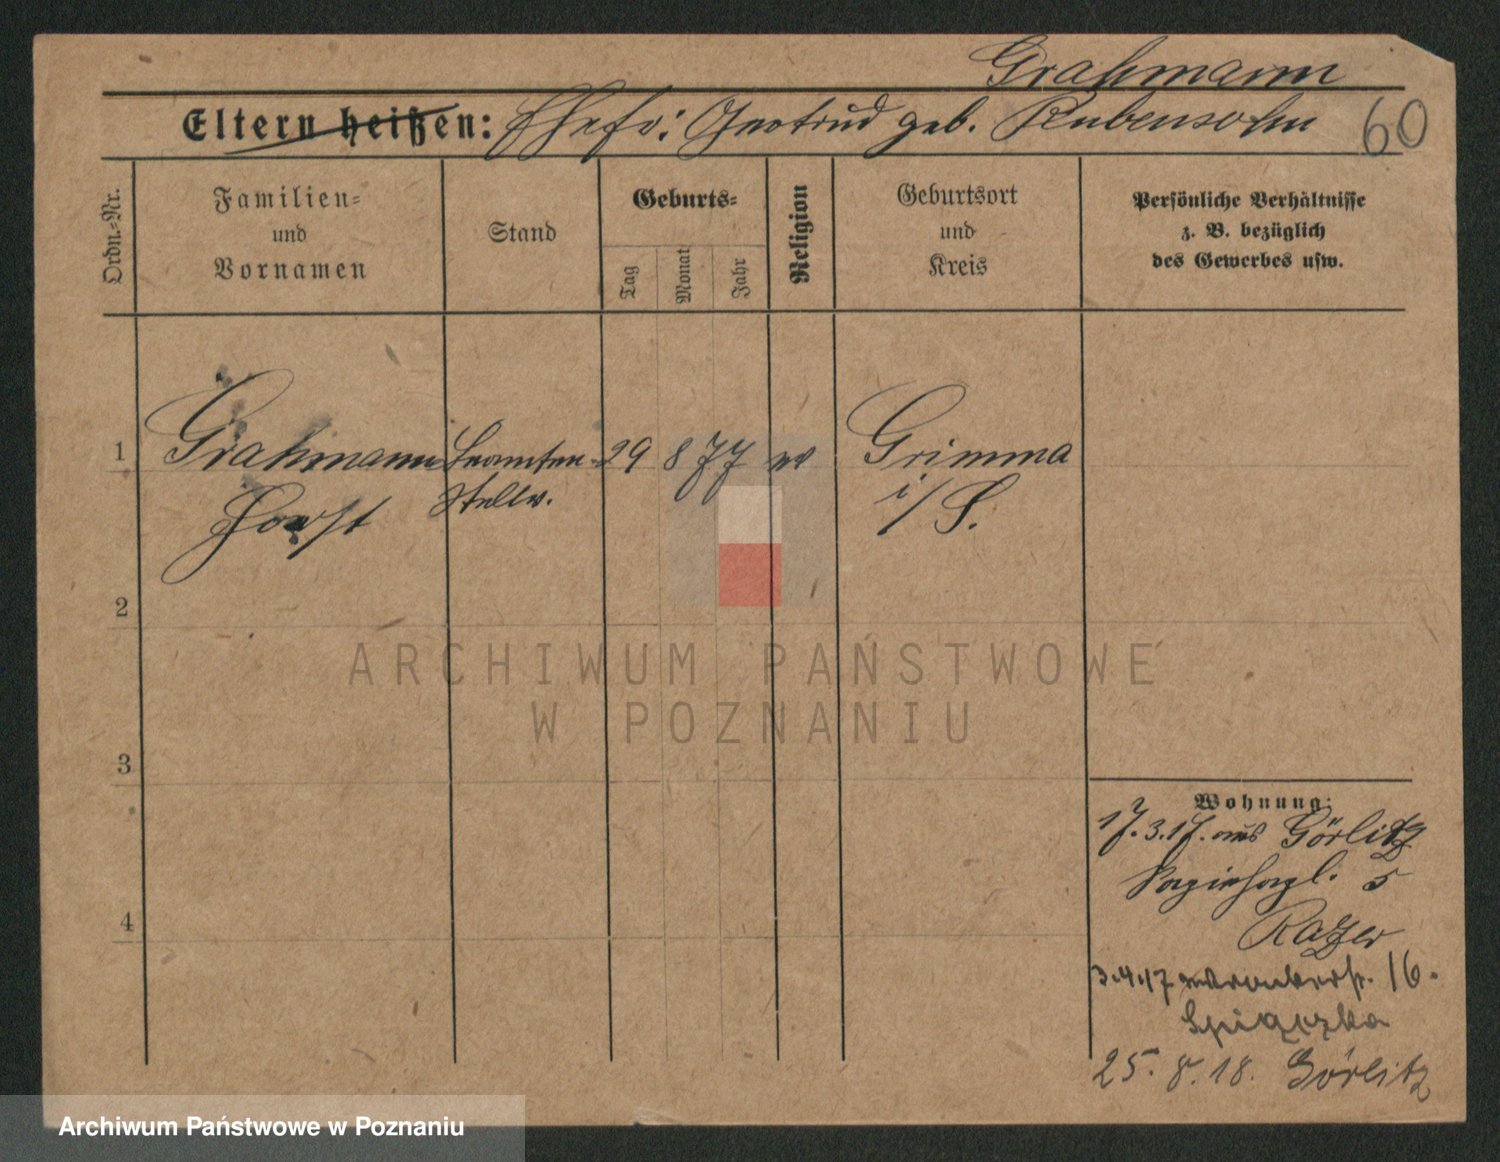 Grahmann
Eltern heißen: Ehefr: Gertrud geb. Rubensohn 60
Ordn.-Nr.
Familien-
und
Vornamen
Stand
Geburts-
Tag
Monat
Jahr
Religion
Geburtsort
und
Kreis
Persönliche Verhältnisse
z. B. bezüglich
des Gewerbes usw.
1 Grahmann Beamten- 29 8 77 ev Grimma
Horst Stellv. i/S.
2
ARCHIWUM PAŃSTWOWE
W POZNANIU
3
Wohnung:
17.3.17. aus Görlitz
5
4
Razer
3.4.17 16.
25. 8. 18. Görlitz
Archiwum Państwowe w Poznaniu